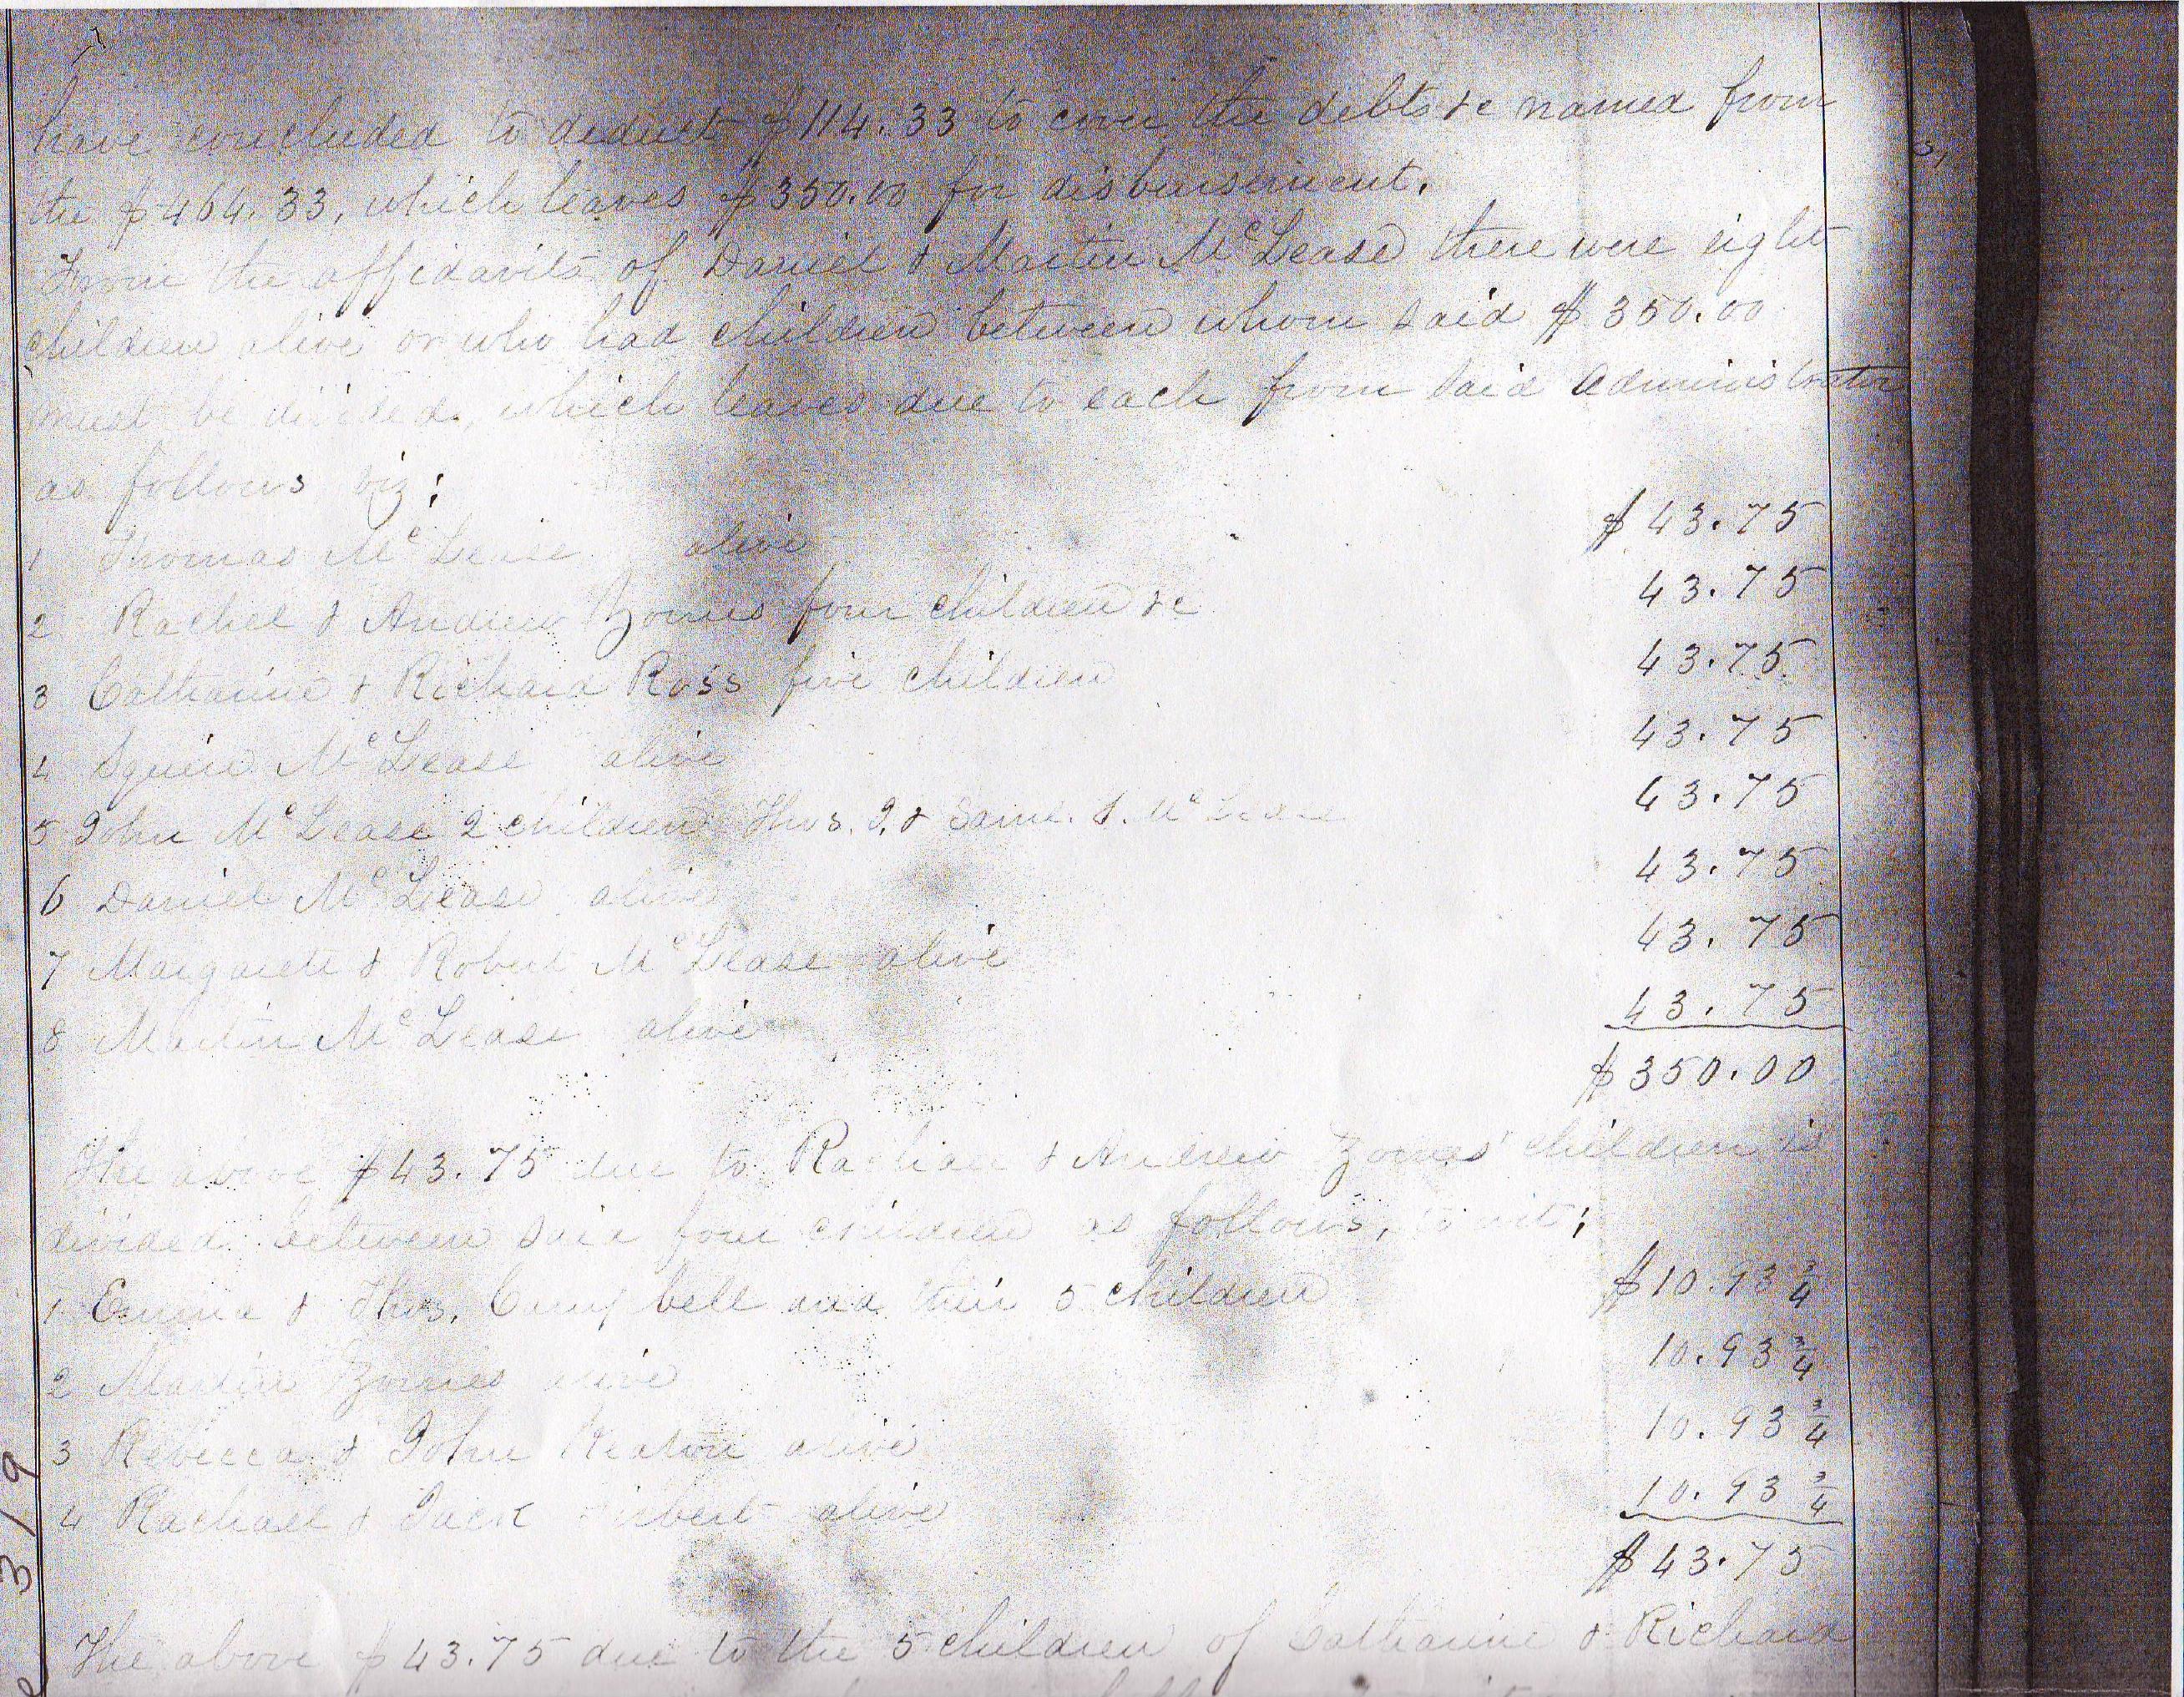 have concluded to deduct $114.33 to cover the debts &c named from
the $464.33, which leaves $350.00 for disbursement.
From the affidavits of Daniel & Martin McLease there were eight
children alive or who had children between whom said $350.00
must be divided, which leaves due to each from said administrator
as follows viz:
1 Thomas McLease alive $43.75
2 Rachel & Andrew Zornes four children &c 43.75
3 Catharine & Richard Ross five children 43.75
4 Squire McLease alive 43.75
5 John McLease 2 children Thos. J. & Saml. S. McLease 43.75
6 Daniel McLease alive 43.75
7 Margarett & Robert McLease alive 43.75
8 Martin McLease alive 43.75
$350.00
The above $43.75 due to Rachael & Andrew Zornes' children is
divided between said four children as follows, to wit;
1 Emma & Thos. Campbell and their 5 children $10.93 3/4
2 Martin Zornes alive 10.93 3/4
3 Rebecca & John alive 10.93 3/4
4 Rachael & Jack alive 10.93 3/4
$43.75
The above $43.75 due to the 5 children of Catharine & Richard
319